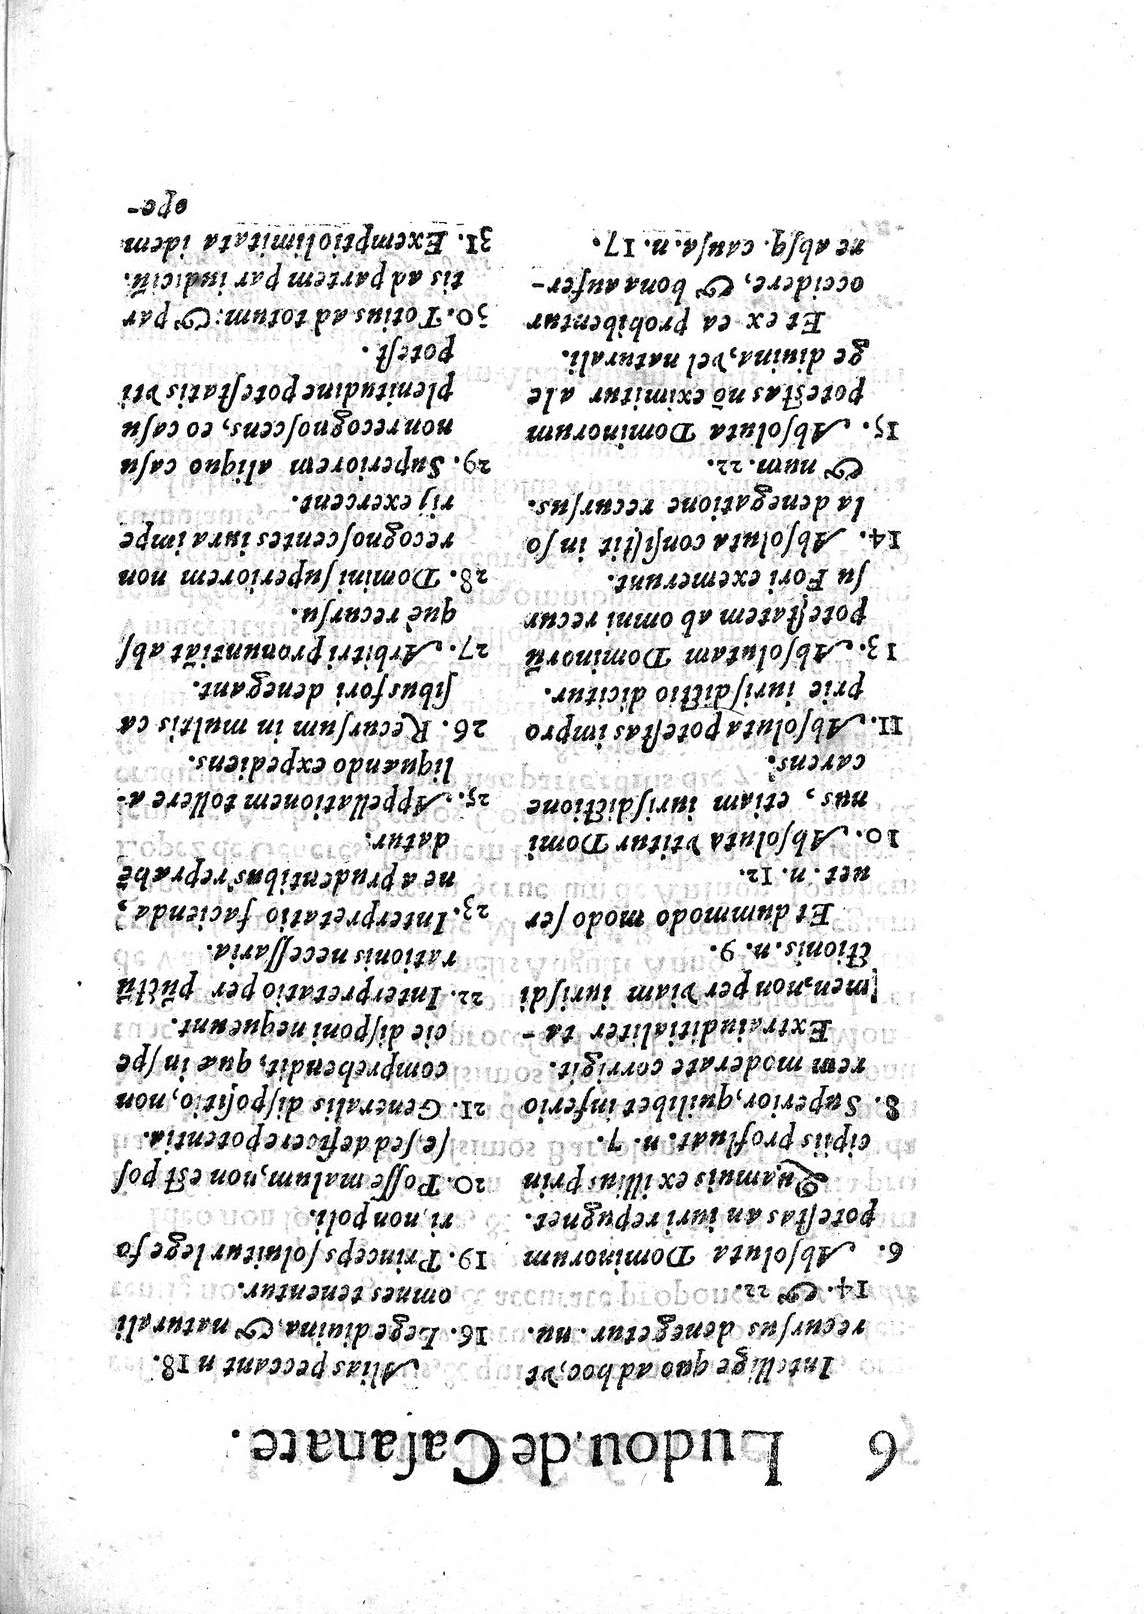 6 Ludou. de Caſanate.
Intellige quo ad hoc, vt
recurſus denegetur. nu.
14. & 22.
6. Abſoluta Dominorum
poteſtas an iuri repugnet.
Quamuis ex illius prin
cipiis profluat. n. 7.
8. Superior, quilibet inferio
rem moderate corrigit.
Extraiuditialiter ta-
men, non per viam iuriſdi
ctionis. n. 9.
Et dummodo modo ſer
uet. n. 12.
10. Abſoluta vtitur Domi
nus, etiam iuriſdictione
carens.
11. Abſoluta poteſtas impro
prie iuriſdictio dicitur.
13. Abſolutam Dominorũ
poteſtatem ab omni recur
ſu Fori exemerunt.
14. Abſoluta conſiſtit in ſo
la denegatione recurſus.
& num. 22.
15. Abſoluta Dominorum
poteſtas nõ eximitur a le
ge diuina, vel naturali.
Et ex ea prohibentur
occidere, & bona aufer-
re abſq. cauſa. n. 17.
Alias peccant n 18.
16. Lege diuina, & naturali
omnes tenentur.
19. Princeps ſoluitur lege fo
ri, non poli.
20. Poſſe malum, non eſt poſ
ſe, ſed deficere potentia.
21. Generalis diſpoſitio, non
comprehendit, quæ in ſpe
cie diſponi nequeunt.
22. Interpretatio per pũctũ
rationis neceſſaria.
23. Interpretatio facienda,
ne a prudentibus repræhẽ
datur.
25. Appellationem tollere a-
liquando expediens.
26. Recurſum in multis ca
ſibus fori denegant.
27. Arbitri pronuntiãt abſ
què recurſu.
28. Domini ſuperiorem non
recognoſcentes iura impe
rij exercent.
29. Superiorem aliquo caſu
non recognoſcens, eo caſu
plenitudine poteſtatis vti
poteſt.
30. Totius ad totum: & par
tis ad partem par iudiciũ.
31. Exemptio limitata idem
ope-